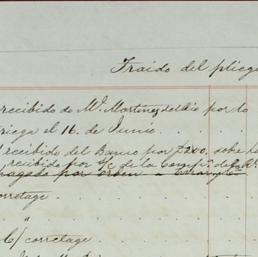 Traido del plieg
recibido de Mr. Martinez del Rio por to
riega el 16 de Junio . . .
recibido del Banco por $200. sobre
recibido por c/c de la Comp
pagado por orden a
corretage . . .
" . . .
c/ corretage